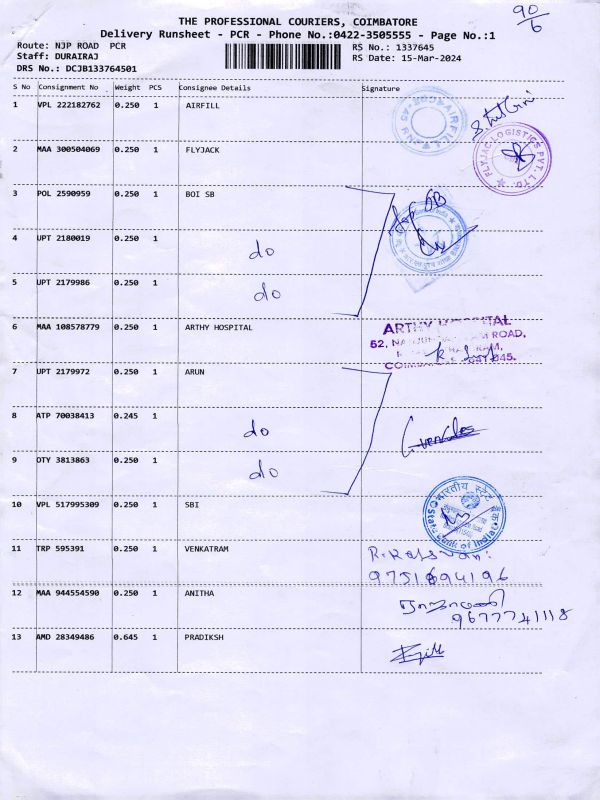 90
6
THE PROFESSIONAL COURIERS, COIMBATORE
Delivery Runsheet - PCR - Phone No.:0422-3505555 - Page No.:1
Route: NJP ROAD PCR
RS No.: 1337645
Staff: DURAIRAJ
RS Date: 15-Mar-2024
DRS No.: DCJB133764501
S No Consignment No Weight PCS Consignee Details Signature
1 VPL 222182762 0.250 1 AIRFILL
AIRFILL
2 MAA 300504069 0.250 1 FLYJACK
FLYJAC LOGISTICS PVT. LTD.
3 POL 2590959 0.250 1 BOI SB
4 UPT 2180019 0.250 1 do
5 UPT 2179986 0.250 1 do
6 MAA 108578779 0.250 1 ARTHY HOSPITAL
ARTHY HOSPITAL
52, ROAD,
7 UPT 2179972 0.250 1 ARUN
8 ATP 70038413 0.245 1 do
9 OTY 3813863 0.250 1 do
10 VPL 517995309 0.250 1 SBI
भारतीय स्टेट बैंक
State Bank of India
11 TRP 595391 0.250 1 VENKATRAM
9751694196
12 MAA 944554590 0.250 1 ANITHA
9677741118
13 AMD 28349486 0.645 1 PRADIKSH